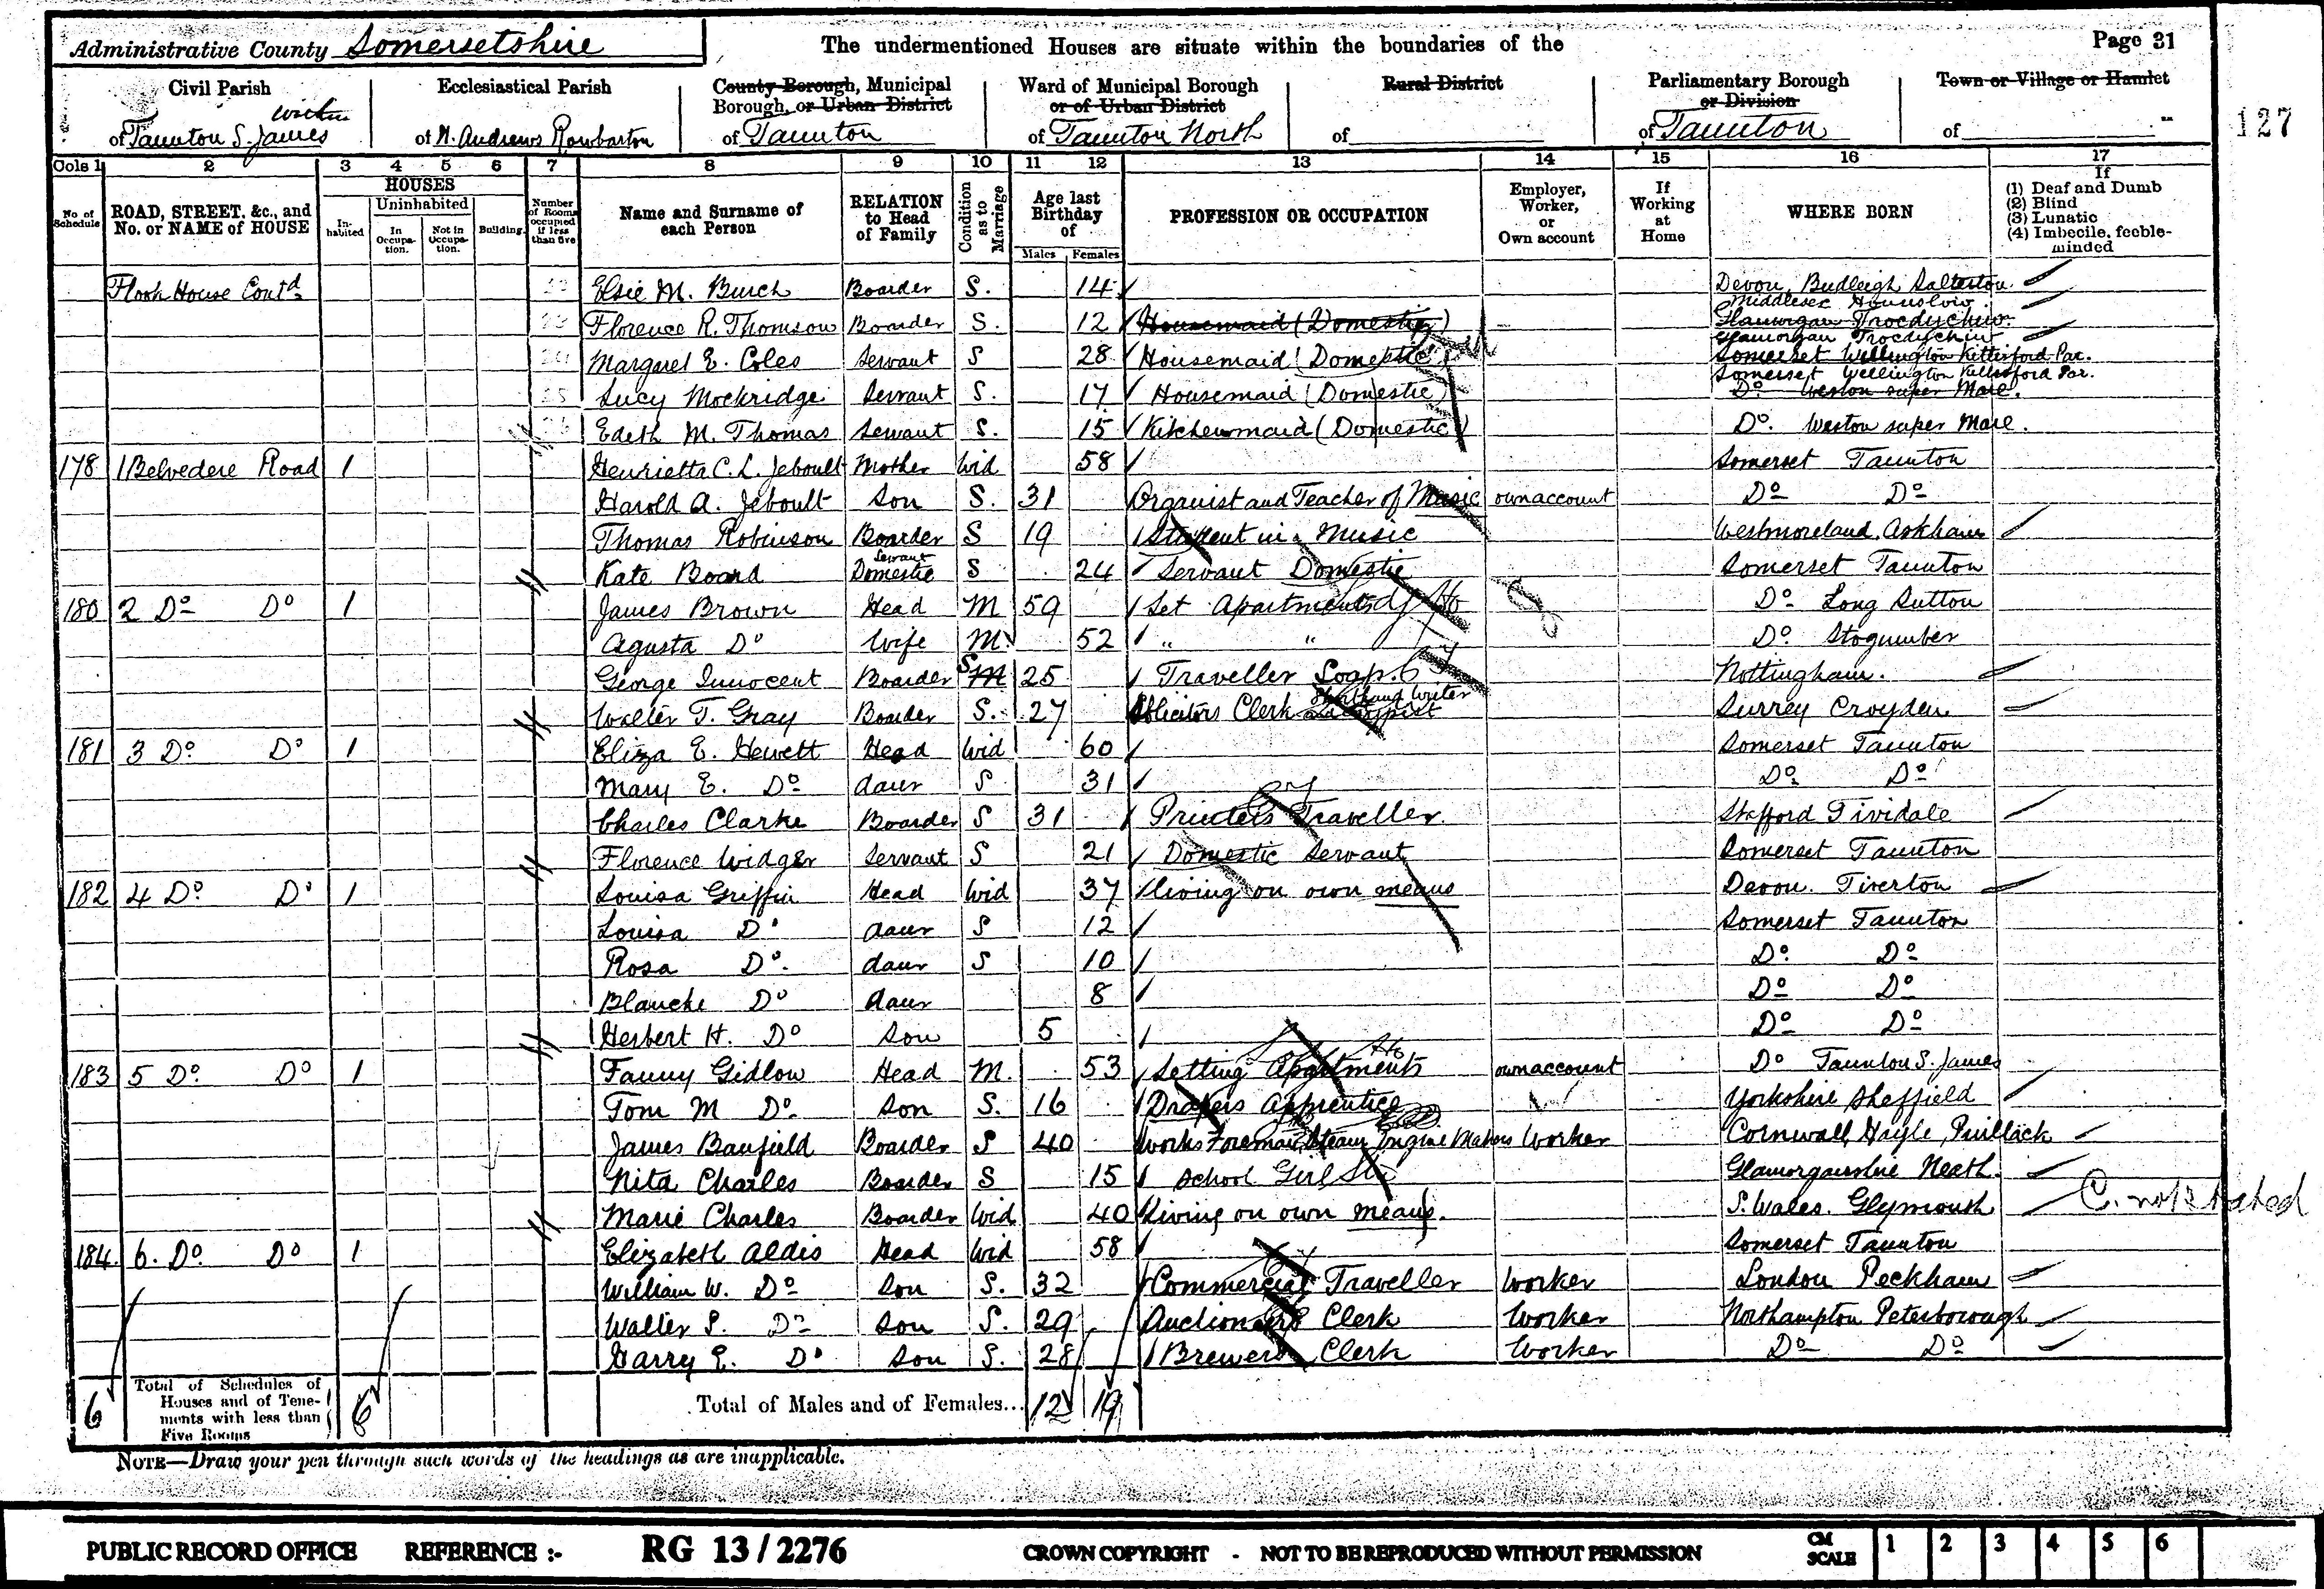 Administrative County Somersetshire
The undermentioned Houses are situate within the boundaries of the
Page 31
127
Civil Parish
within
of Taunton S. James
Ecclesiastical Parish
of St. Andrews Rowbarton
County Borough, Municipal
Borough, or Urban District
of Taunton
Ward of Municipal Borough
or of Urban District
of Taunton North
Rural District
of
Parliamentary Borough
or Division
of Taunton
Town or Village or Hamlet
of
Cols 1 2 3 4 5 6 7 8 9 10 11 12 13 14 15 16 17
No of Schedule
ROAD, STREET, &c., and No. or NAME of HOUSE
HOUSES
Inhabited
Uninhabited
In Occupation.
Not in Occupation.
Building.
Number of Rooms occupied if less than five
Name and Surname of each Person
RELATION to Head of Family
Condition as to Marriage
Age last Birthday of
Males Females
PROFESSION OR OCCUPATION
Employer, Worker, or Own account
If Working at Home
WHERE BORN
If
(1) Deaf and Dumb
(2) Blind
(3) Lunatic
(4) Imbecile, feeble-minded
Flook House Contd Elsie M. Burch Boarder S. 14 Devon, Budleigh Salterton
Middlesex Hounslow
Florence R. Thomson Boarder S. 12 Housemaid (Domestic) Glamorgan
Glamorgan
Margaret E. Coles Servant S 28 Housemaid (Domestic) Somerset Wellington Kittisford Par.
Somerset Wellington Kittisford Par.
Lucy Mockridge Servant S. 17 Housemaid (Domestic) Do Weston super Mare.
Edith M. Thomas Servant S. 15 Kitchenmaid (Domestic) Do. Weston super Mare.
178 1 Belvedere Road 1 Henrietta C. L. Jeboult Mother Wid 58 Somerset Taunton
Harold A. Jeboult Son S. 31 Organist and Teacher of Music own account Do Do
Thomas Robinson Boarder S 19 Student in Music Westmoreland, Askham
Kate Board Domestic Servant S 24 Servant Domestic Somerset Taunton
180 2 Do Do 1 James Brown Head M 59 Let Apartments Do Long Sutton
Agusta Do Wife M. 52 " " Do Stogumber
George Innocent Boarder S M 25 Traveller Soap. Nottingham.
Shorthand Writer
Walter T. Gray Boarder S. 27 Solicitors Clerk Surrey Croyden
181 3 Do Do 1 Eliza E. Hewett Head Wid 60 Somerset Taunton
Mary E. Do daur S 31 Do Do
Charles Clarke Boarder S 31 Printers Traveller. Stafford Tividale
Florence Widger Servant S 21 Domestic Servant Somerset Taunton
182 4 Do Do 1 Louisa Griffin Head Wid 37 Living on own means Devon. Tiverton
Louisa Do daur S 12 Somerset Taunton
Rosa Do daur S 10 Do Do
Blanche Do daur 8 Do Do
Herbert H. Do Son 5 Do Do
183 5 Do Do 1 Fanny Gidlow Head M. 53 Letting Apartments own account Do Taunton S. James
Tom M Do Son S. 16 Drapers Apprentice Yorkshire Sheffield
James Banfield Boarder S 40 Works Foreman, Steam Engine Makers Worker Cornwall, Hayle, Phillack
Nita Charles Boarder S 15 School Girl Glamorganshire Neath.
Marie Charles Boarder Wid 40 Living on own means. S. Wales. Glymouth C. not stated
184 6. Do Do 1 Elizabeth Aldis Head Wid 58 Somerset Taunton
William W. Do Son S. 32 Commercial Traveller Worker London Peckham
Walter S. Do Son S. 29 Auctioneers Clerk Worker Northampton Peterborough
Harry E. Do Son S. 28 Brewers Clerk Worker Do Do
6 Total of Schedules of Houses and of Tenements with less than Five Rooms 6 Total of Males and of Females... 12 19
NOTE—Draw your pen through such words of the headings as are inapplicable.
PUBLIC RECORD OFFICE REFERENCE :- RG 13 / 2276 CROWN COPYRIGHT - NOT TO BE REPRODUCED WITHOUT PERMISSION CM SCALE 1 2 3 4 5 6